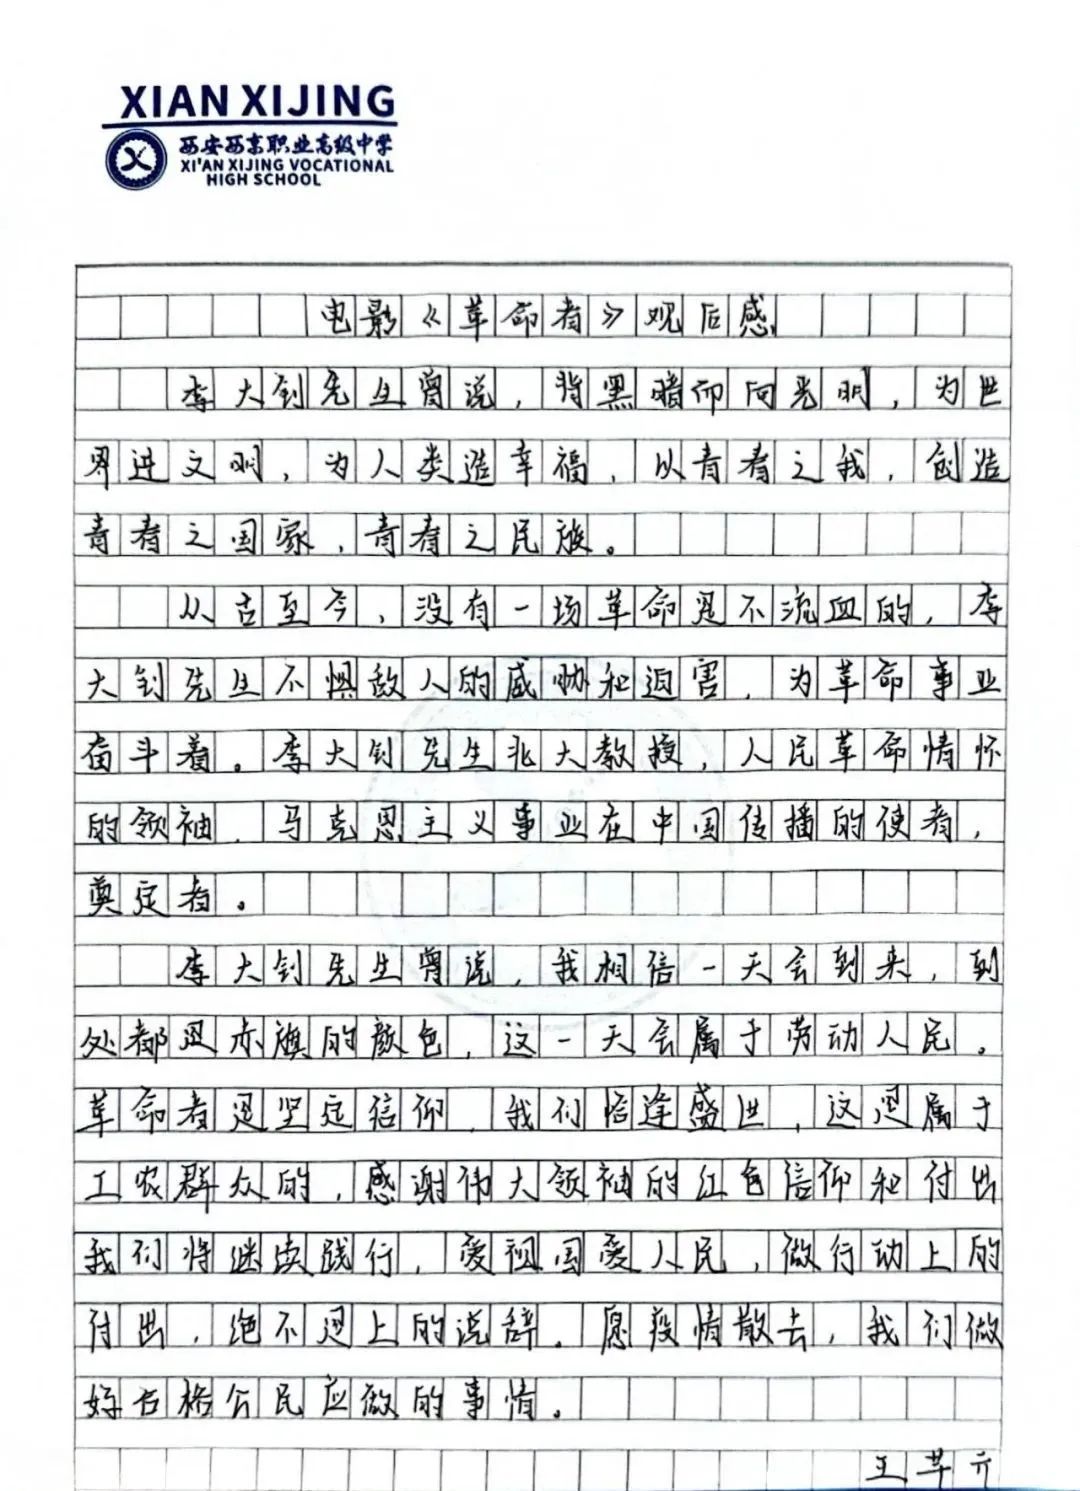 XIAN XIJING
西安西京职业高级中学
XI'AN XIJING VOCATIONAL
HIGH SCHOOL
电影《革命者》观后感
李大钊先生曾说，背黑暗而向光明，为世
界进文明，为人类造幸福，以青春之我，创造
青春之国家，青春之民族。
从古至今，没有一场革命是不流血的，李
大钊先生不惧敌人的威胁和迫害，为革命事业
奋斗着。李大钊先生北大教授，人民革命情怀
的领袖，马克思主义事业在中国传播的使者，
奠定者。
李大钊先生曾说，我相信一天会到来，到
处都是赤旗的颜色，这一天会属于劳动人民。
革命者是坚定信仰，我们恰逢盛世，这是属于
工农群众的，感谢伟大领袖的红色信仰和付出
我们将继续践行，爱祖国爱人民，做行动上的
付出，绝不是上的说辞。愿疫情散去，我们做
好合格公民应做的事情。
王